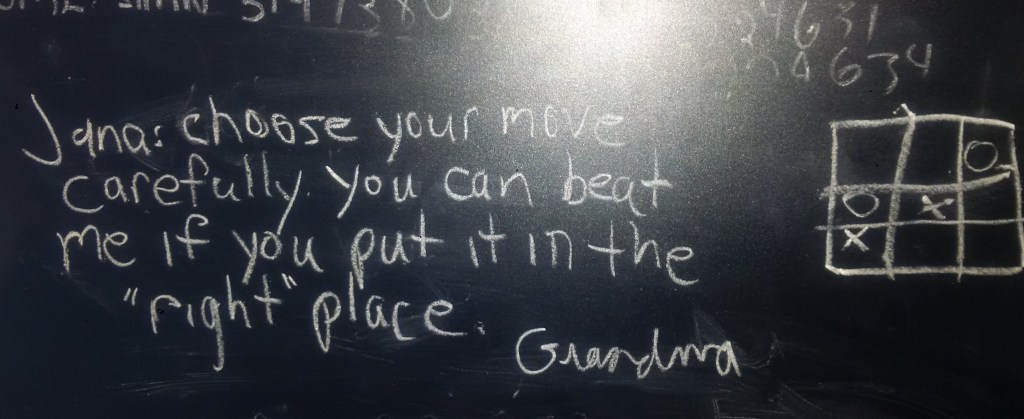 24631
634
Jana: choose your move
carefully. You can beat
me if you put it in the
"right" place.
Grandma
O
O X
X